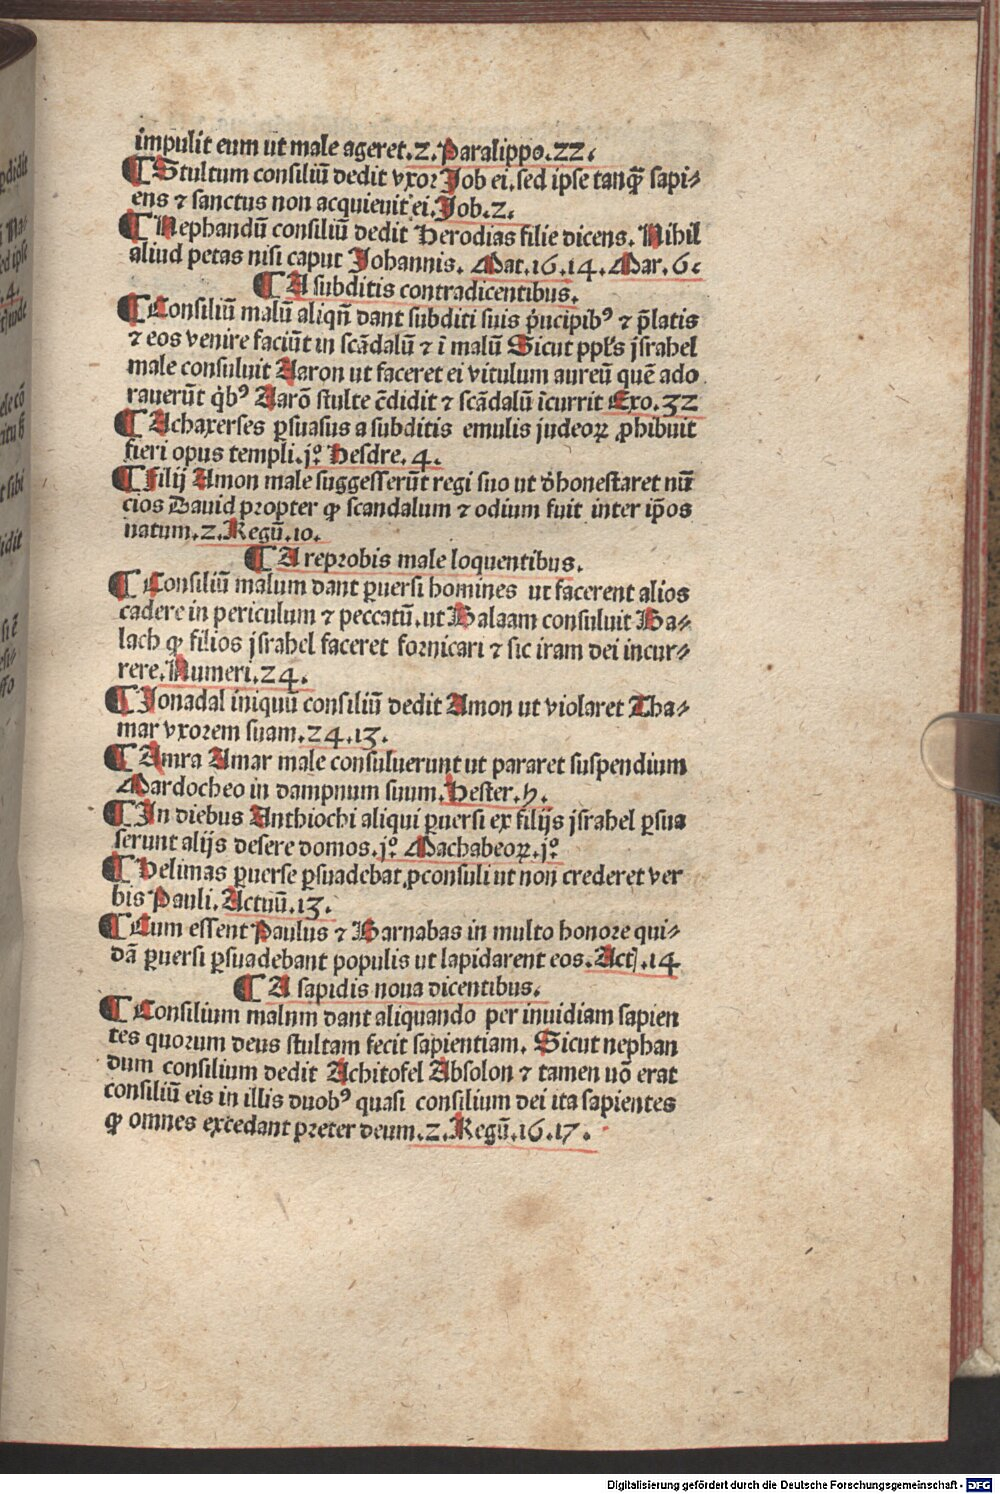 impulit eum ut male ageret.2.Paralippo.22.
¶ Stultum consiliū dedit vxor Job ei.sed ipse tanq̄ sapi⸗
ens ⁊ sanctus non acquieuit ei.Job.2.
¶ Nephandū consiliū dedit Herodias filie dicens. Nihil
aliud petas nisi caput Johannis. Mat.16.14.Mar.6.
¶ A subditis contradicentibus.
¶ Consiliū malū aliqn̄ dant subditi suis pͥncipibꝰ ⁊ p̄latis
⁊ eos venire faciūt in scādalū ⁊ ī malū Sicut ppl's jsrahel
male consuluit Aaron ut faceret ei vitulum aureū quē ado
rauerūt qͥbꝰ Aarō stulte c̄didit ⁊ scādalū īcurrit Exo.32
¶ Achaxerses ꝑsuasus a subditis emulis judeoꝝ ꝓhibuit
fieri opus templi.jº Hesdre.4.
¶ filij Amon male suggesserūt regi suo ut d'honestaret nū
cios Dauid propter ꝙ scandalum ⁊ odium fuit inter ip̄os
natum.2.Regū.10.
¶ A reprobis male loquentibus.
¶ Consiliū malum dant ꝑuersi homines ut facerent alios
cadere in periculum ⁊ peccatū.ut Balaam consuluit Ba⸗
lach ꝙ filios jsrahel faceret fornicari ⁊ sic iram dei incur⸗
rere.Numeri.24.
¶ Jonadal iniquū consiliū dedit Amon ut violaret Tha⸗
mar vxorem suam.24.13.
¶ Amra Amar male consuluerunt ut pararet suspendium
Mardocheo in dampnum suum.Hester.5.
¶ In diebus Anthiochi aliqui ꝑuersi ex filijs jsrahel ꝑsua
serunt alijs desere domos.jº Machabeoꝝ.jº
¶ Helimas ꝑuerse ꝑsuadebat ꝓconsuli ut non crederet ver
bis Pauli.Actuū.13.
¶ Cum essent Paulus ⁊ Barnabas in multo honore qui⸗
dā ꝑuersi ꝑsuadebant populis ut lapidarent eos.Act.14
¶ A sapidis noua dicentibus.
¶ Consilium malum dant aliquando per inuidiam sapien
tes quorum deus stultam fecit sapientiam. Sicut nephan
dum consilium dedit Achitofel Absolon ⁊ tamen uō erat
consiliū eis in illis duobꝰ quasi consilium dei ita sapientes
ꝙ omnes excedant preter deum.2.Regū.16.17.
Digitalisierung gefördert durch die Deutsche Forschungsgemeinschaft - DFG